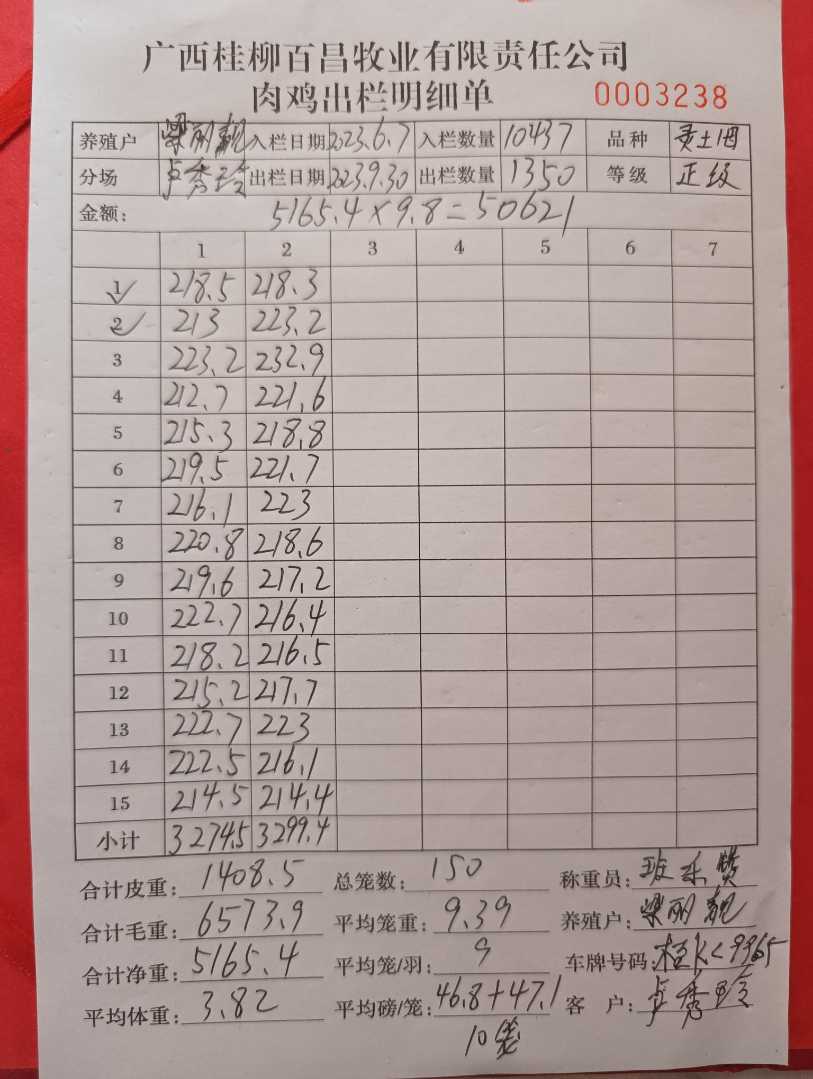 广西桂柳百昌牧业有限责任公司
肉鸡出栏明细单 0003238
养殖户 梁丽靓 入栏日期 2023.6.7 入栏数量 10437 品种
分场 卢秀玲 出栏日期 2023.9.30 出栏数量 1350 等级 正级
金额: 5165.4×9.8=50621
1 2 3 4 5 6 7
1 218.5 218.3
2 213 223.2
3 223.2 232.9
4 212.7 221.6
5 215.3 218.8
6 219.5 221.7
7 216.1 223
8 220.8 218.6
9 219.6 217.2
10 222.7 216.4
11 218.2 216.5
12 215.2 217.7
13 222.7 223
14 222.5 216.1
15 214.5 214.4
小计 3274.5 3299.4
合计皮重: 1408.5 总笼数: 150 称重员:
合计毛重: 6573.9 平均笼重: 9.39 养殖户: 梁丽靓
合计净重: 5165.4 平均笼/羽: 9 车牌号码:
平均体重: 3.82 平均磅/笼: 46.8+47.1 客 户: 卢秀玲
10笼